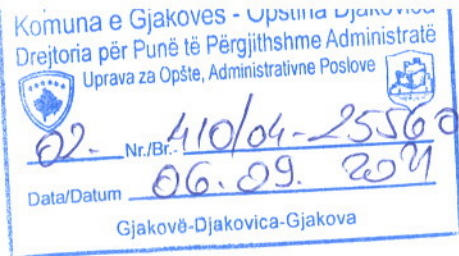 Komuna e Gjakovës - Opština Djakovica
Drejtoria për Punë të Përgjithshme Administratë
Uprava za Opšte, Administrativne Poslove
02. Nr./Br. 410/04-25560
Data/Datum 06.09. 2021
Gjakovë-Djakovica-Gjakova